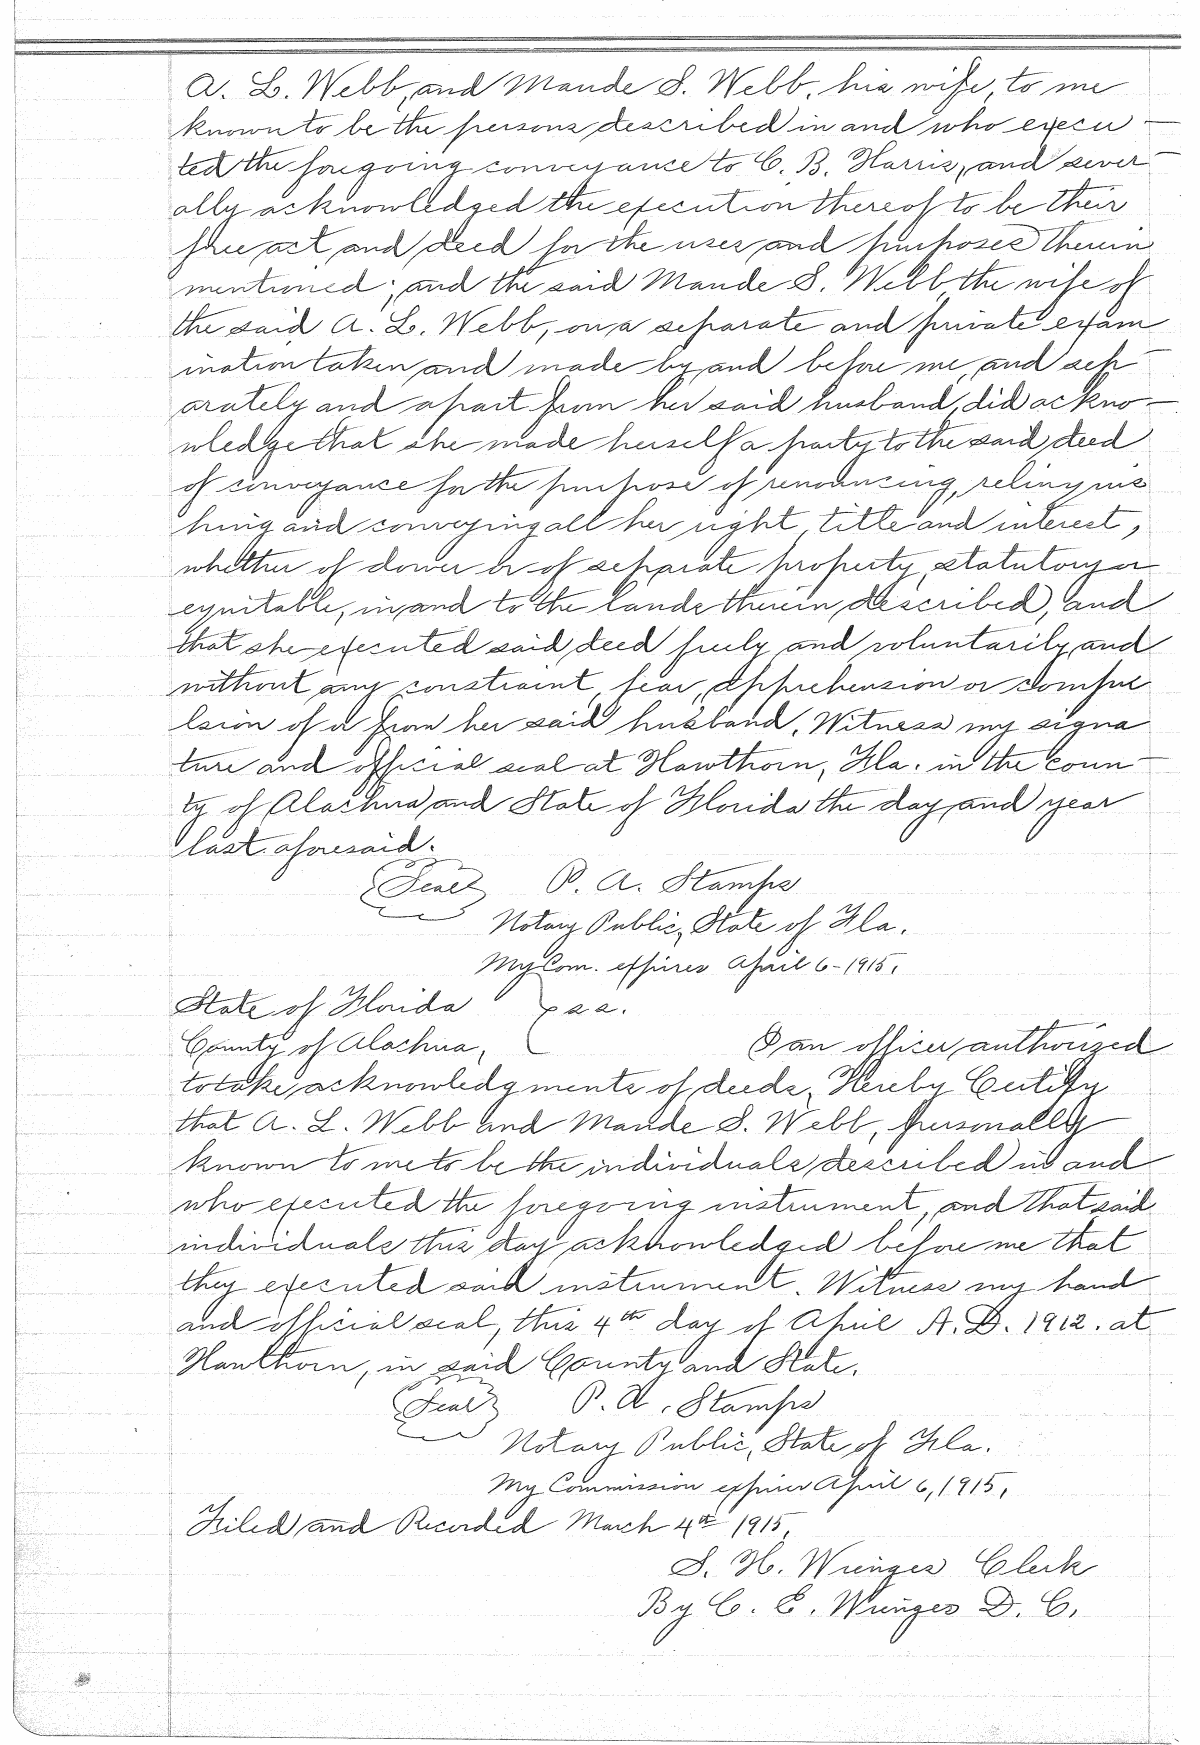 A. L. Webb, and Maude S. Webb, his wife, to me
known to be the persons described in and who execu-
ted the foregoing conveyance to C. B. Harris, and sever-
ally acknowledged the execution thereof to be their
free act and deed for the uses and purposes therein
mentioned; and the said Maude S. Webb, the wife of
the said A. L. Webb, on a separate and private exam
ination taken and made by and before me, and sep-
arately and apart from her said husband, did ackno-
wledge that she made herself a party to the said deed
of conveyance for the purpose of renouncing, relinquis
hing and conveying all her right, title and interest,
whether of dower or of separate property, statutory or
equitable, in and to the lands therein described, and
that she executed said deed freely and voluntarily and
without any constraint, fear, apprehension or compu
lsion of or from her said husband. Witness my signa
ture and official seal at Hawthorn, Fla. in the coun-
ty of Alachua and State of Florida the day and year
last aforesaid.
Seal P. A. Stamps
Notary Public, State of Fla.
My Com. expires April 6-1915.
State of Florida } ss.
County of Alachua, I an officer authorized
to take acknowledgments of deeds, Hereby Certify
that A. L. Webb and Maude S. Webb, personally
known to me to be the individuals described in and
who executed the foregoing instrument, and that said
individuals this day acknowledged before me that
they executed said instrument. Witness my hand
and official seal, this 4th day of April A.D. 1912. at
Hawthorn, in said County and State.
Seal P. A. Stamps
Notary Public, State of Fla.
My Commission expires April 6, 1915.
Filed and Recorded March 4th 1915,
S. H. Wienges Clerk
By C. E. Wienges D. C.